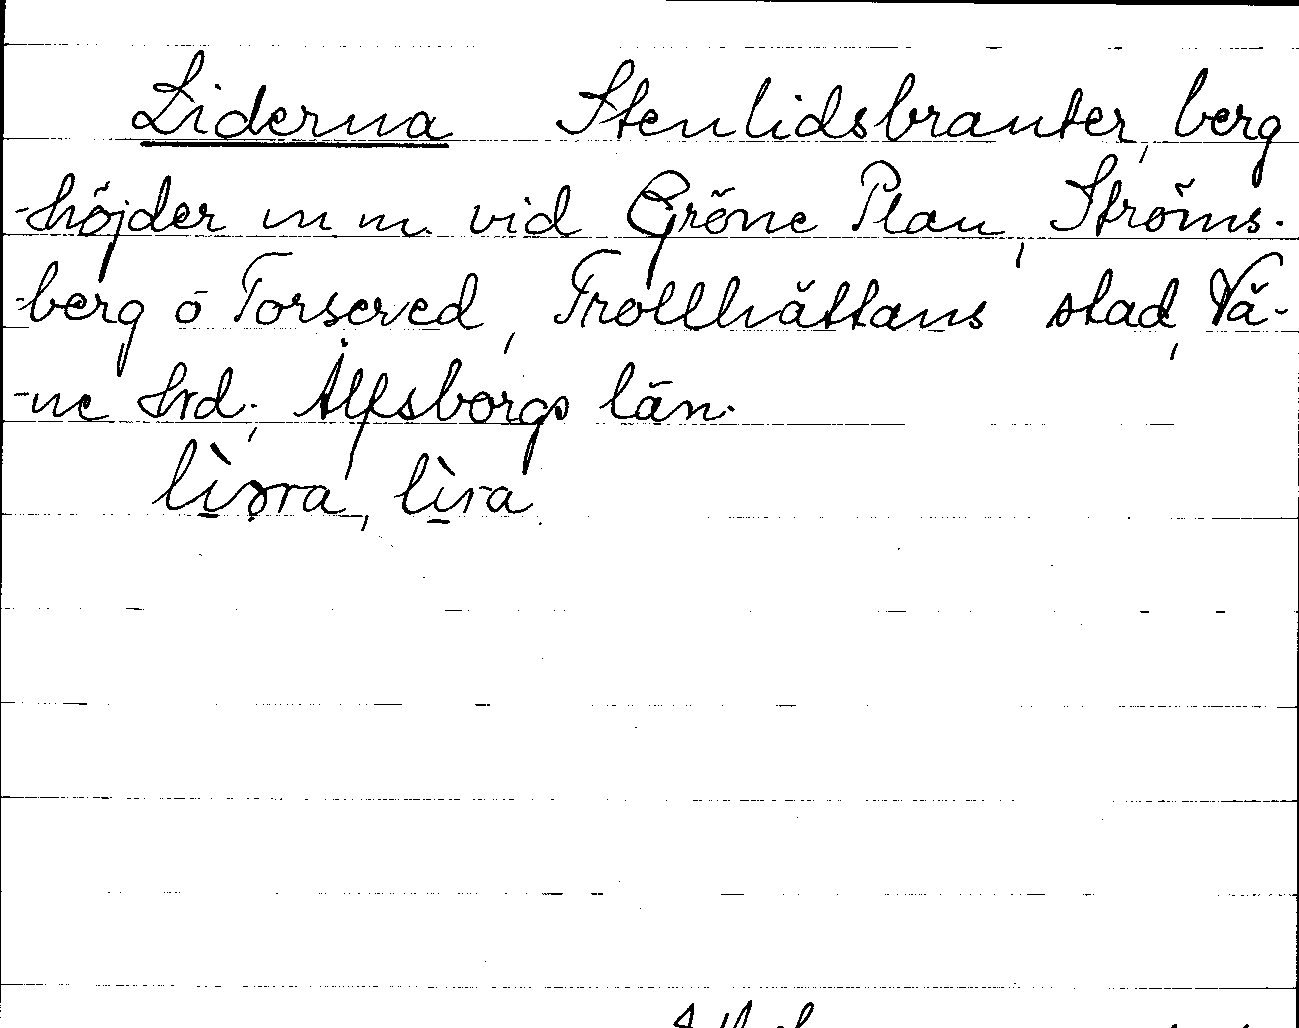 Liderna Stenlidsbranter, berg
-höjder m m. vid Gröne Plan, Ströms-
-berg o Torsered, Trollhättans stad, Vä-
-ne hrd., Älfsborgs län.
lìərra, lìra